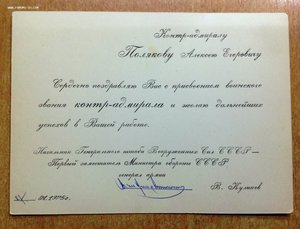 Контр-адмиралу
Полякову Алексею Егоровичу
Сердечно поздравляю Вас с присвоением воинского
звания контр-адмирала и желаю дальнейших
успехов в Вашей работе.
Начальник Генерального штаба Вооруженных Сил СССР —
Первый заместитель Министра обороны СССР
генерал армии
В. Куликов
1975г.